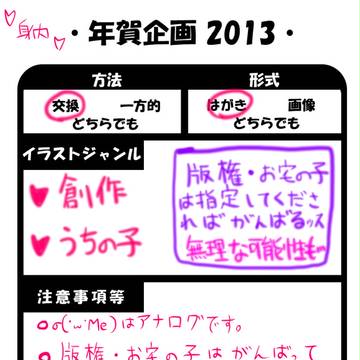 身内
・年賀企画 2013・
方法
形式
交換 一方的
どちらでも
はがき 画像
どちらでも
イラストジャンル
♥創作
♥うちの子
版権・お宅の子
は指定してくださ
ればがんばるッス
無理な可能性も
注意事項等
o σ(･ω･Me)はアナログです。
o 版権・お宅の子はがんばって